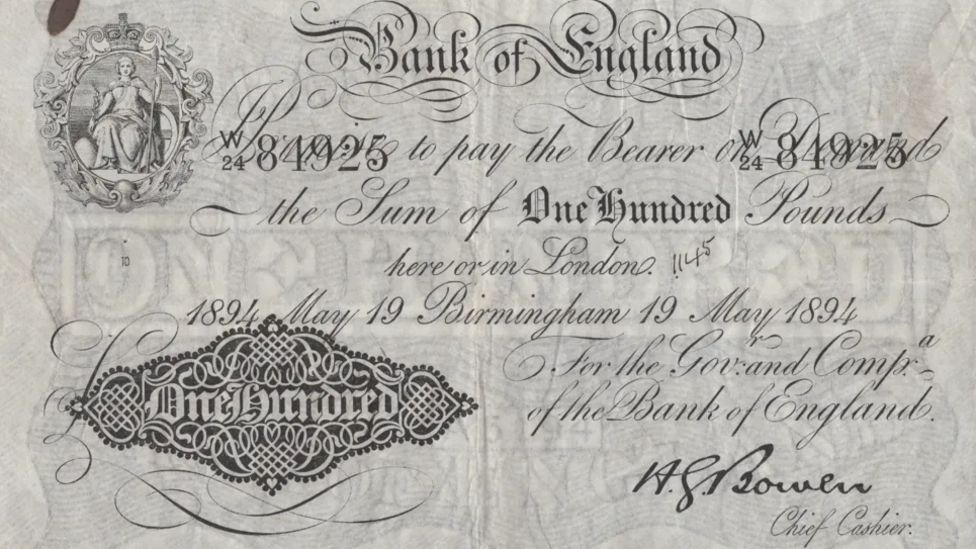 Bank of England
W/24 84925 to pay the Bearer on Demand W/24 84925
the Sum of One Hundred Pounds
here or in London. 1145
10
1894 May 19 Birmingham 19 May 1894
For the Govr: and Compa:
of the Bank of England.
One Hundred
H.G. Bowen
Chief Cashier.
ONE HUNDRED